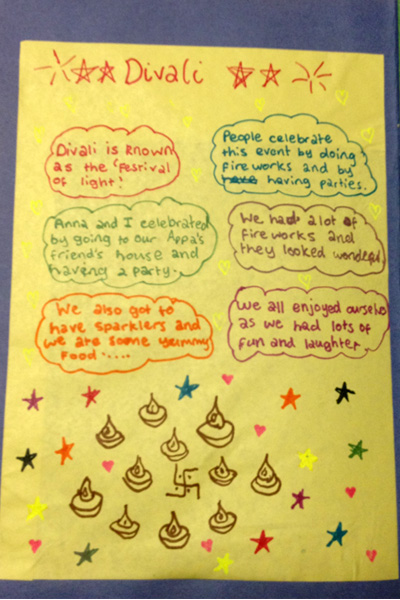 Divali
Divali is known
as the 'festival
of light'.
People celebrate
this event by doing
fireworks and by
having parties.
Anna and I celebrated
by going to our Appa's
friend's house and
having a party.
We had a lot of
fireworks and
they looked wonderful.
We also got to
have sparklers and
we ate some yummy
food....
We all enjoyed ourselves
as we had lots of
fun and laughter.